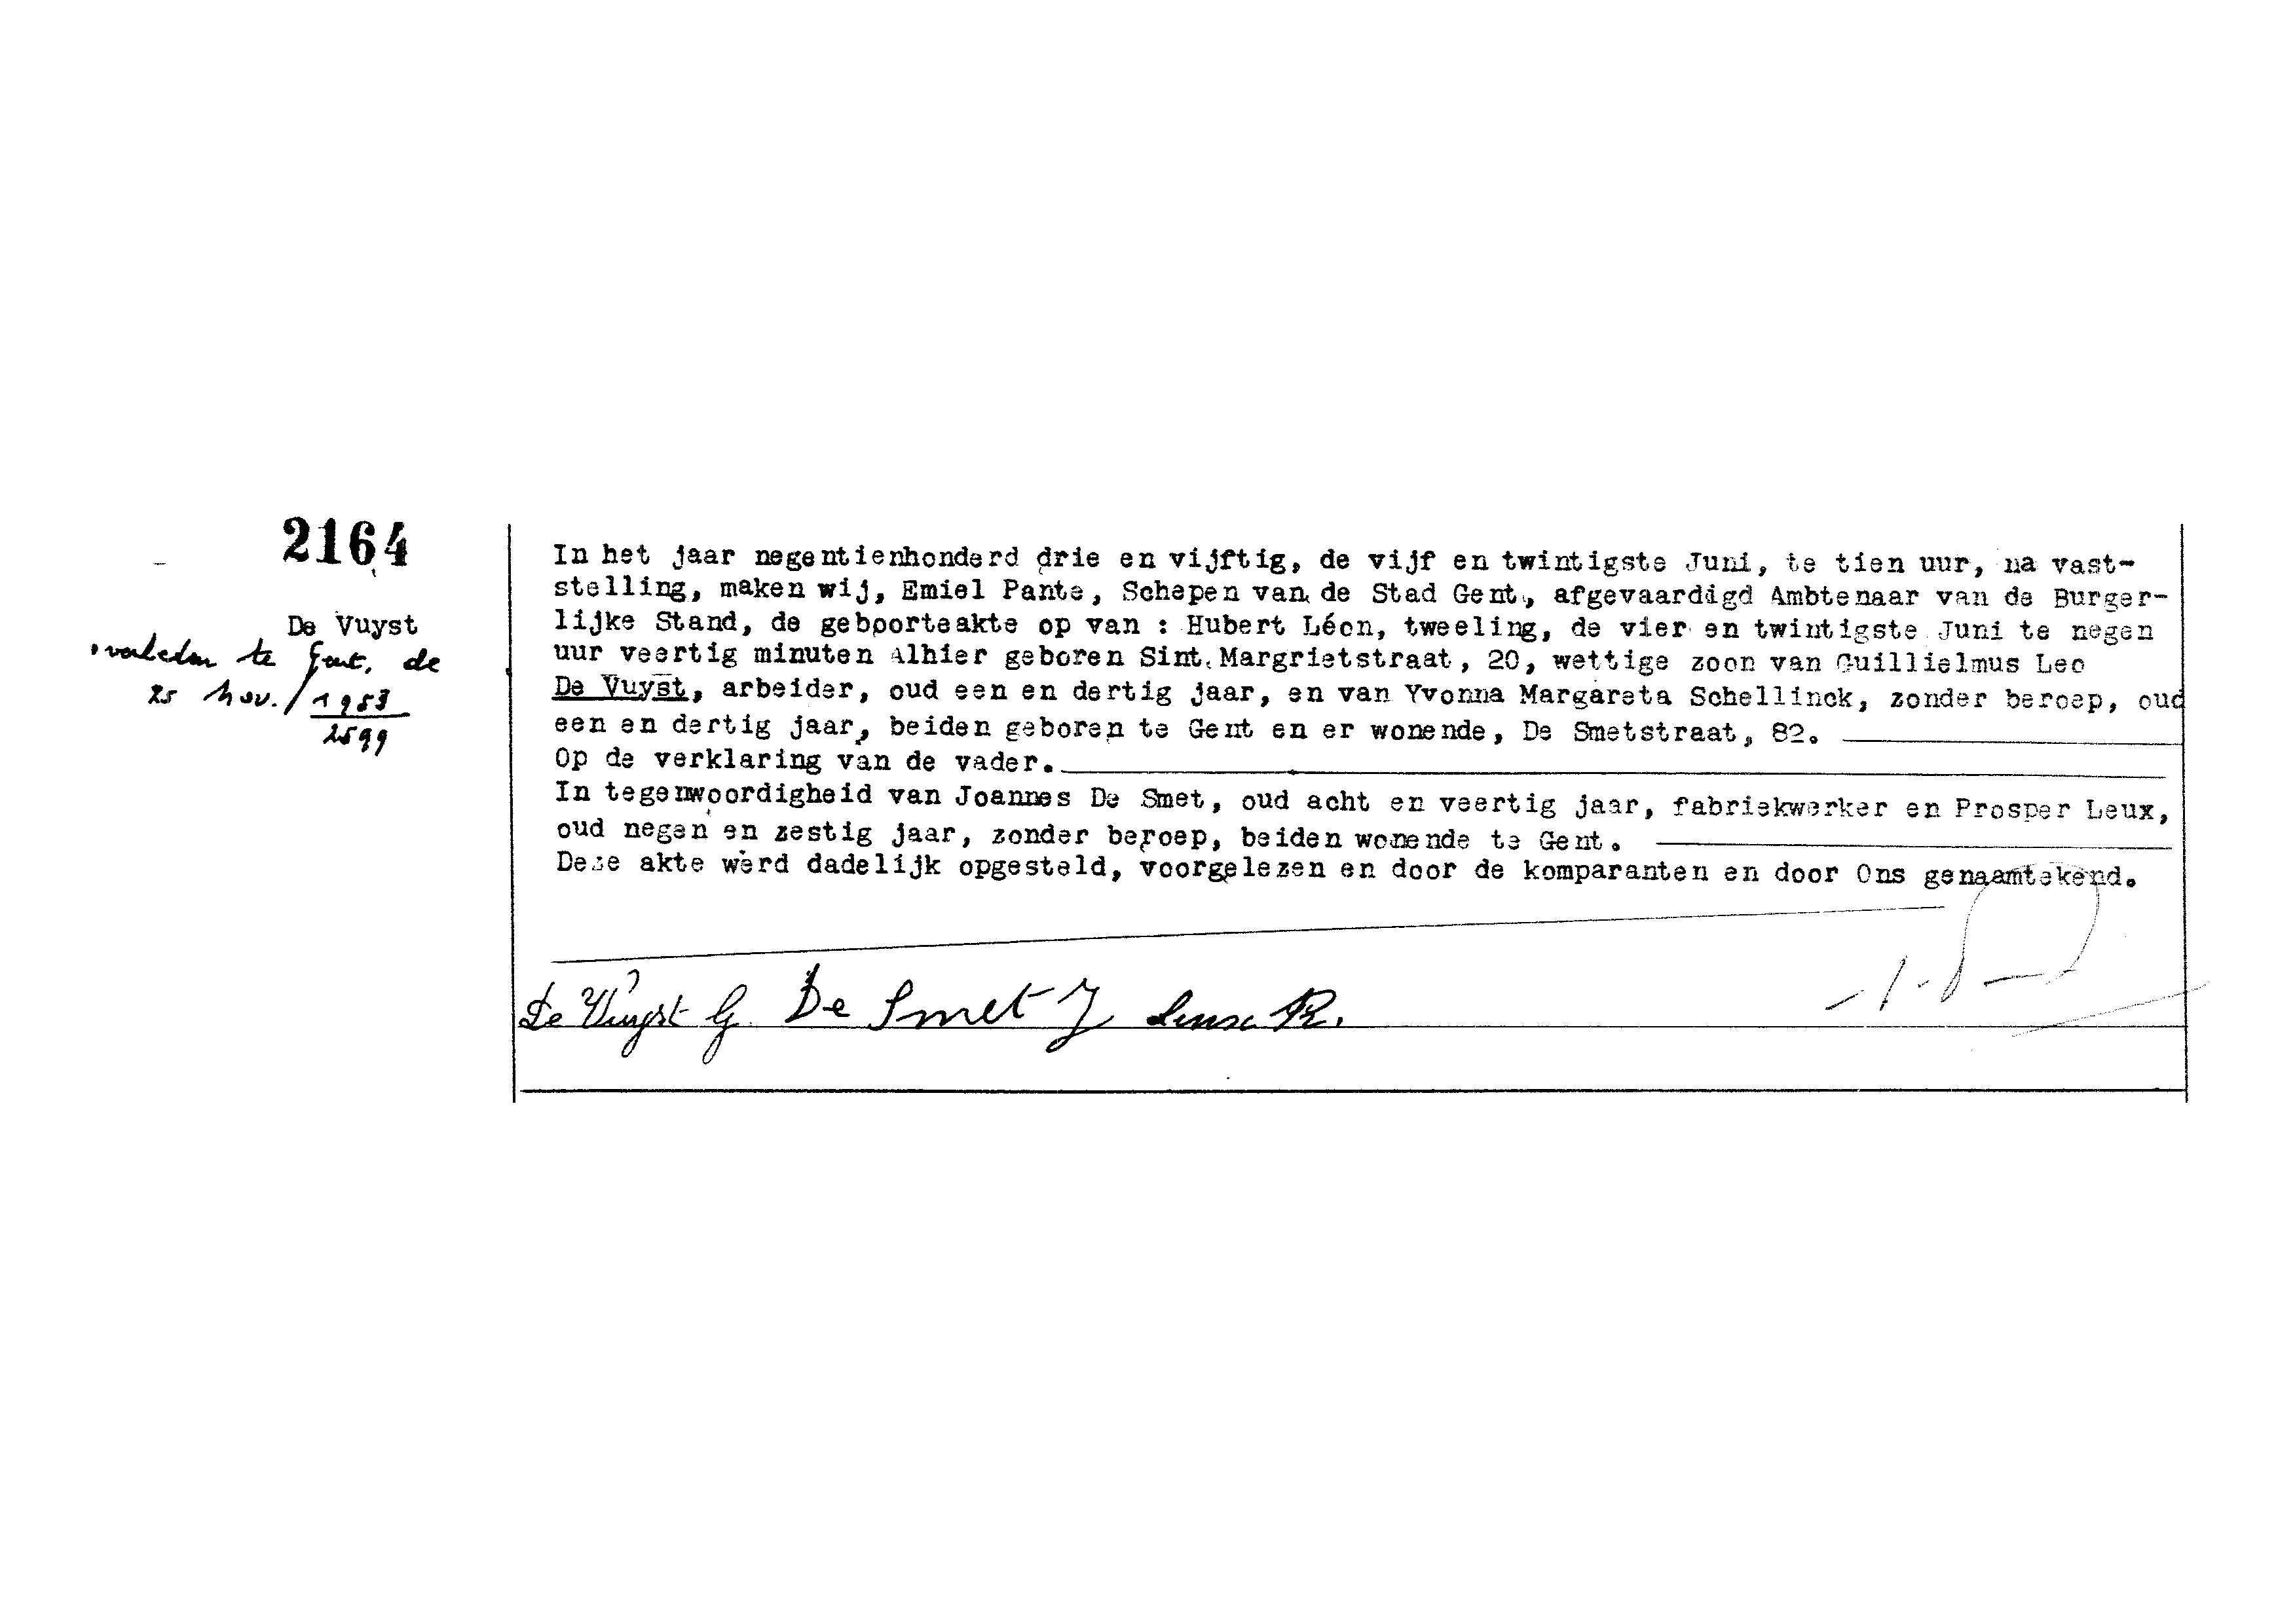 2164
De Vuyst
overleden te Gent, de
25 Nov. / 1953
2599
In het jaar negentienhonderd drie en vijftig, de vijf en twintigste Juni, te tien uur, na vast-
stelling, maken wij, Emiel Pante, Schepen van de Stad Gent, afgevaardigd Ambtenaar van de Burger-
lijke Stand, de geboorteakte op van : Hubert Léon, tweeling, de vier en twintigste Juni te negen
uur veertig minuten Alhier geboren Sint.Margrietstraat, 20, wettige zoon van Guillielmus Leo
De Vuyst, arbeider, oud een en dertig jaar, en van Yvonna Margareta Schellinck, zonder beroep, oud
een en dertig jaar, beiden geboren te Gent en er wonende, De Smetstraat, 82.
Op de verklaring van de vader.
In tegenwoordigheid van Joannes De Smet, oud acht en veertig jaar, fabriekwerker en Prosper Leux,
oud negen en zestig jaar, zonder beroep, beiden wonende te Gent.
Deze akte werd dadelijk opgesteld, voorgelezen en door de komparanten en door Ons genaamtekend.
De Vuyst G. De Smet J